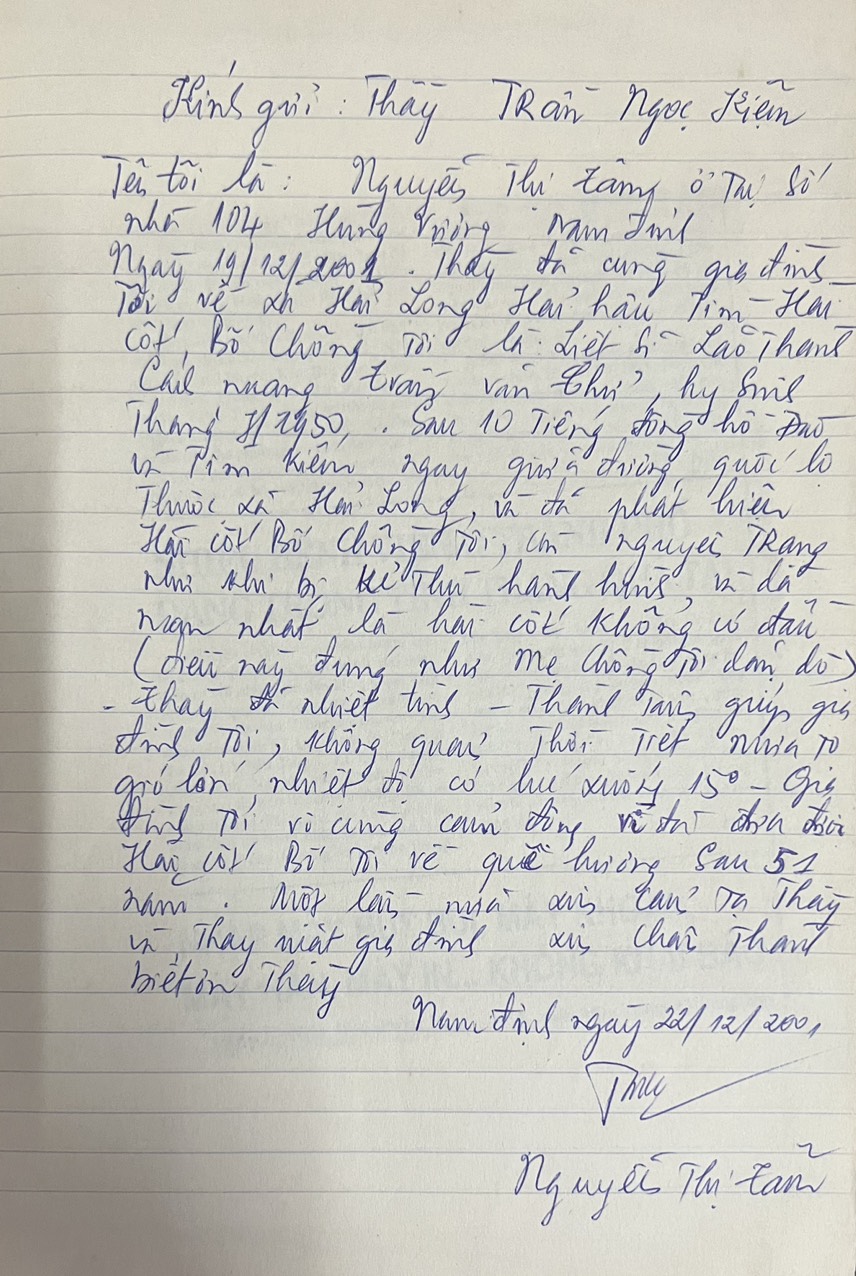 Kính gửi : Thầy Trần Ngọc Kiện
Tên tôi là : Nguyễn Thị Tâm, ở Tại Số
nhà 104 Hùng Vương Nam Định
Ngày 19/12/2001. Thầy đã cùng gia đình
Tôi về xã Hải Long Hải hậu Tìm Hài
cốt, Bố Chồng Tôi là : Liệt sĩ Lão Thành
Cách mạng Trần văn Thử, hy Sinh
Tháng 7/1950, . Sau 10 Tiếng đồng hồ Đào
và Tìm Kiếm ngay giữa đường quốc lộ
Thuộc xã Hải Long, và đã phát hiện
Hài cốt Bố Chồng Tôi, còn nguyên Trạng
như khi bị Kẻ Thù hành hình, và đã
nhất là hài cốt không có đầu
(điều này đúng như Mẹ Chồng Tôi dặn dò)
- Thầy đã nhiệt tình - Thành Tâm giúp gia
đình Tôi, không quản Thời Tiết mưa to
gió lớn, nhiệt độ có lúc xuống 15° - Gia
đình Tôi vô cùng cảm động vì đã đưa được
Hài cốt Bố Tôi về quê hương Sau 51
năm. Một lần nữa xin Cảm Tạ Thầy
và Thay mặt gia đình xin Chân Thành
biết ơn Thầy
Nam định ngày 22/12/2001
Nguyễn Thị Tâm